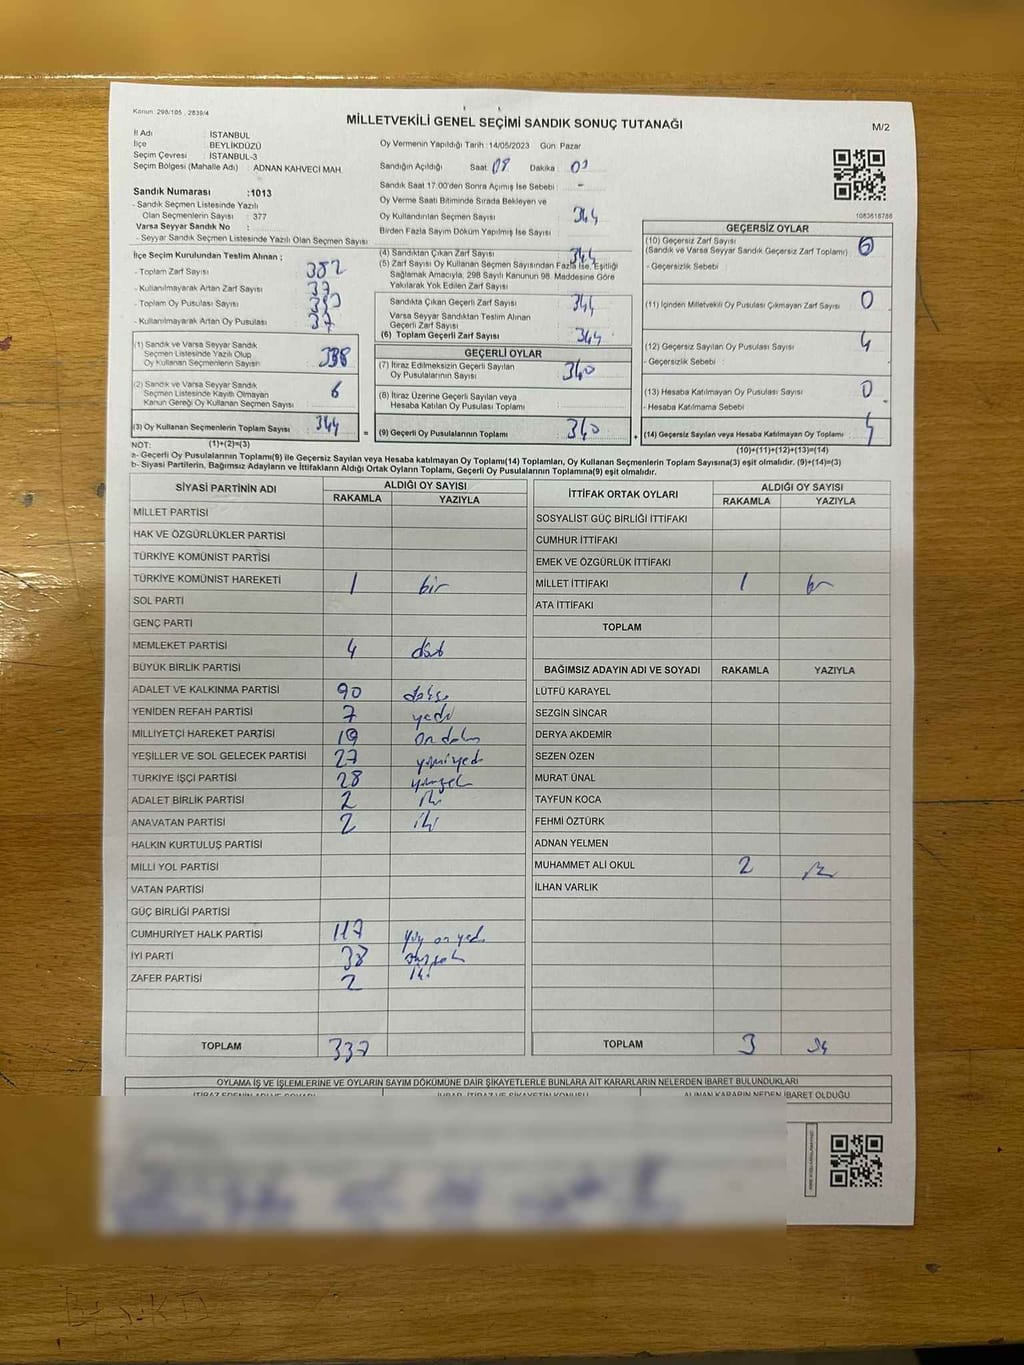 Kanun: 298/105 , 2839/4
MİLLETVEKİLİ GENEL SEÇİMİ SANDIK SONUÇ TUTANAĞI
M/2
İl Adı : İSTANBUL
İlçe : BEYLİKDÜZÜ
Seçim Çevresi : İSTANBUL-3
Seçim Bölgesi (Mahalle Adı) : ADNAN KAHVECİ MAH.
Sandık Numarası :1013
- Sandık Seçmen Listesinde Yazılı
Olan Seçmenlerin Sayısı : 377
Varsa Seyyar Sandık No :
- Seyyar Sandık Seçmen Listesinde Yazılı Olan Seçmen Sayısı
Oy Vermenin Yapıldığı Tarih :14/05/2023 Gün: Pazar
Sandığın Açıldığı Saat : 08 Dakika :
Sandık Saat 17:00'den Sonra Açımış İse Sebebi : -
Oy Verme Saati Bitiminde Sırada Bekleyen ve
Oy Kullandırılan Seçmen Sayısı : 344
Birden Fazla Sayım Döküm Yapılmış İse Sayısı :
1083618788
İlçe Seçim Kurulundan Teslim Alınan ;
- Toplam Zarf Sayısı : 382
- Kullanılmayarak Artan Zarf Sayısı : 37
- Toplam Oy Pusulası Sayısı :
- Kullanılmayarak Artan Oy Pusulası : 37
(1) Sandık ve Varsa Seyyar Sandık
Seçmen Listesinde Yazılı Olup
Oy Kullanan Seçmenlerin Sayısı : 338
(2) Sandık ve Varsa Seyyar Sandık
Seçmen Listesinde Kayıtlı Olmayan
Kanun Gereği Oy Kullanan Seçmen Sayısı : 6
(3) Oy Kullanan Seçmenlerin Toplam Sayısı : 344
(1)+(2)=(3)
(4) Sandıktan Çıkan Zarf Sayısı : 344
(5) Zarf Sayısı Oy Kullanan Seçmen Sayısından Fazla İse, Eşitliği
Sağlamak Amacıyla, 298 Sayılı Kanunun 98. Maddesine Göre
Yakılarak Yok Edilen Zarf Sayısı :
Sandıkta Çıkan Geçerli Zarf Sayısı : 344
Varsa Seyyar Sandıktan Teslim Alınan
Geçerli Zarf Sayısı :
(6) Toplam Geçerli Zarf Sayısı : 344
GEÇERLİ OYLAR
(7) İtiraz Edilmeksizin Geçerli Sayılan
Oy Pusulalarının Sayısı : 340
(8) İtiraz Üzerine Geçerli Sayılan veya
Hesaba Katılan Oy Pusulası Toplamı :
= (9) Geçerli Oy Pusulalarının Toplamı : 340 +
GEÇERSİZ OYLAR
(10) Geçersiz Zarf Sayısı
(Sandık ve Varsa Seyyar Sandık Geçersiz Zarf Toplamı) :
- Geçersizlik Sebebi :
(11) İçinden Milletvekili Oy Pusulası Çıkmayan Zarf Sayısı : 0
(12) Geçersiz Sayılan Oy Pusulası Sayısı : 4
- Geçersizlik Sebebi :
(13) Hesaba Katılmayan Oy Pusulası Sayısı : 0
- Hesaba Katılmama Sebebi :
(14) Geçersiz Sayılan veya Hesaba Katılmayan Oy Toplamı : 4
(10)+(11)+(12)+(13)=(14)
NOT:
a- Geçerli Oy Pusulalarının Toplamı(9) ile Geçersiz Sayılan veya Hesaba katılmayan Oy Toplamı(14) Toplamları, Oy Kullanan Seçmenlerin Toplam Sayısına(3) eşit olmalıdır. (9)+(14)=(3)
b- Siyasi Partilerin, Bağımsız Adayların ve İttifakların Aldığı Ortak Oyların Toplamı, Geçerli Oy Pusulalarının Toplamına(9) eşit olmalıdır.
SİYASİ PARTİNİN ADI ALDIĞI OY SAYISI
RAKAMLA YAZIYLA
MİLLET PARTİSİ
HAK VE ÖZGÜRLÜKLER PARTİSİ
TÜRKİYE KOMÜNİST PARTİSİ
TÜRKİYE KOMÜNİST HAREKETİ 1 bir
SOL PARTİ
GENÇ PARTİ
MEMLEKET PARTİSİ 4 dört
BÜYÜK BİRLİK PARTİSİ
ADALET VE KALKINMA PARTİSİ 90
YENİDEN REFAH PARTİSİ 7 yedi
MİLLİYETÇİ HAREKET PARTİSİ 19
YEŞİLLER VE SOL GELECEK PARTİSİ 27 yirmiyedi
TÜRKİYE İŞÇİ PARTİSİ 28
ADALET BİRLİK PARTİSİ 2
ANAVATAN PARTİSİ 2 iki
HALKIN KURTULUŞ PARTİSİ
MİLLİ YOL PARTİSİ
VATAN PARTİSİ
GÜÇ BİRLİĞİ PARTİSİ
CUMHURİYET HALK PARTİSİ 117 yüz on yedi
İYİ PARTİ 38
ZAFER PARTİSİ 2 iki
TOPLAM 337
İTTİFAK ORTAK OYLARI ALDIĞI OY SAYISI
RAKAMLA YAZIYLA
SOSYALİST GÜÇ BİRLİĞİ İTTİFAKI
CUMHUR İTTİFAKI
EMEK VE ÖZGÜRLÜK İTTİFAKI
MİLLET İTTİFAKI 1 bir
ATA İTTİFAKI
TOPLAM
BAĞIMSIZ ADAYIN ADI VE SOYADI RAKAMLA YAZIYLA
LÜTFÜ KARAYEL
SEZGİN SİNCAR
DERYA AKDEMİR
SEZEN ÖZEN
MURAT ÜNAL
TAYFUN KOCA
FEHMİ ÖZTÜRK
ADNAN YELMEN
MUHAMMET ALİ OKUL 2
İLHAN VARLIK
TOPLAM 3
OYLAMA İŞ VE İŞLEMLERİNE VE OYLARIN SAYIM DÖKÜMÜNE DAİR ŞİKAYETLERLE BUNLARA AİT KARARLARIN NELERDEN İBARET BULUNDUKLARI
ALINAN KARARIN NEDEN İBARET OLDUĞU